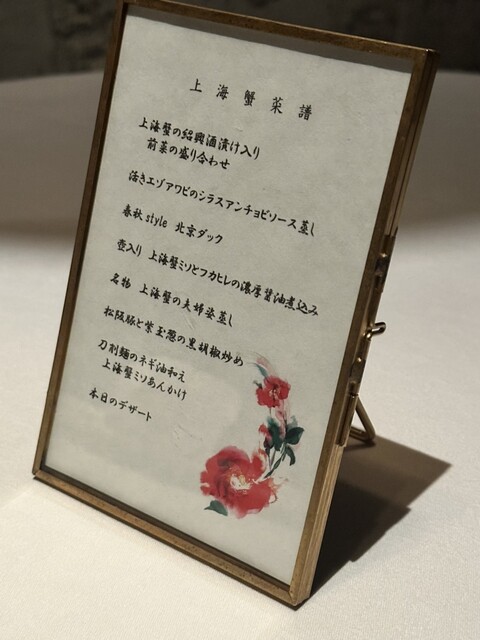 上海蟹菜譜
上海蟹の紹興酒漬け入り
前菜の盛り合わせ
活きエゾアワビのシラスアンチョビソース蒸し
春秋style 北京ダック
壺入り 上海蟹ミソとフカヒレの濃厚醤油煮込み
名物 上海蟹の夫婦姿蒸し
松阪豚と紫玉葱の黒胡椒炒め
刀削麺のネギ油和え
上海蟹ミソあんかけ
本日のデザート